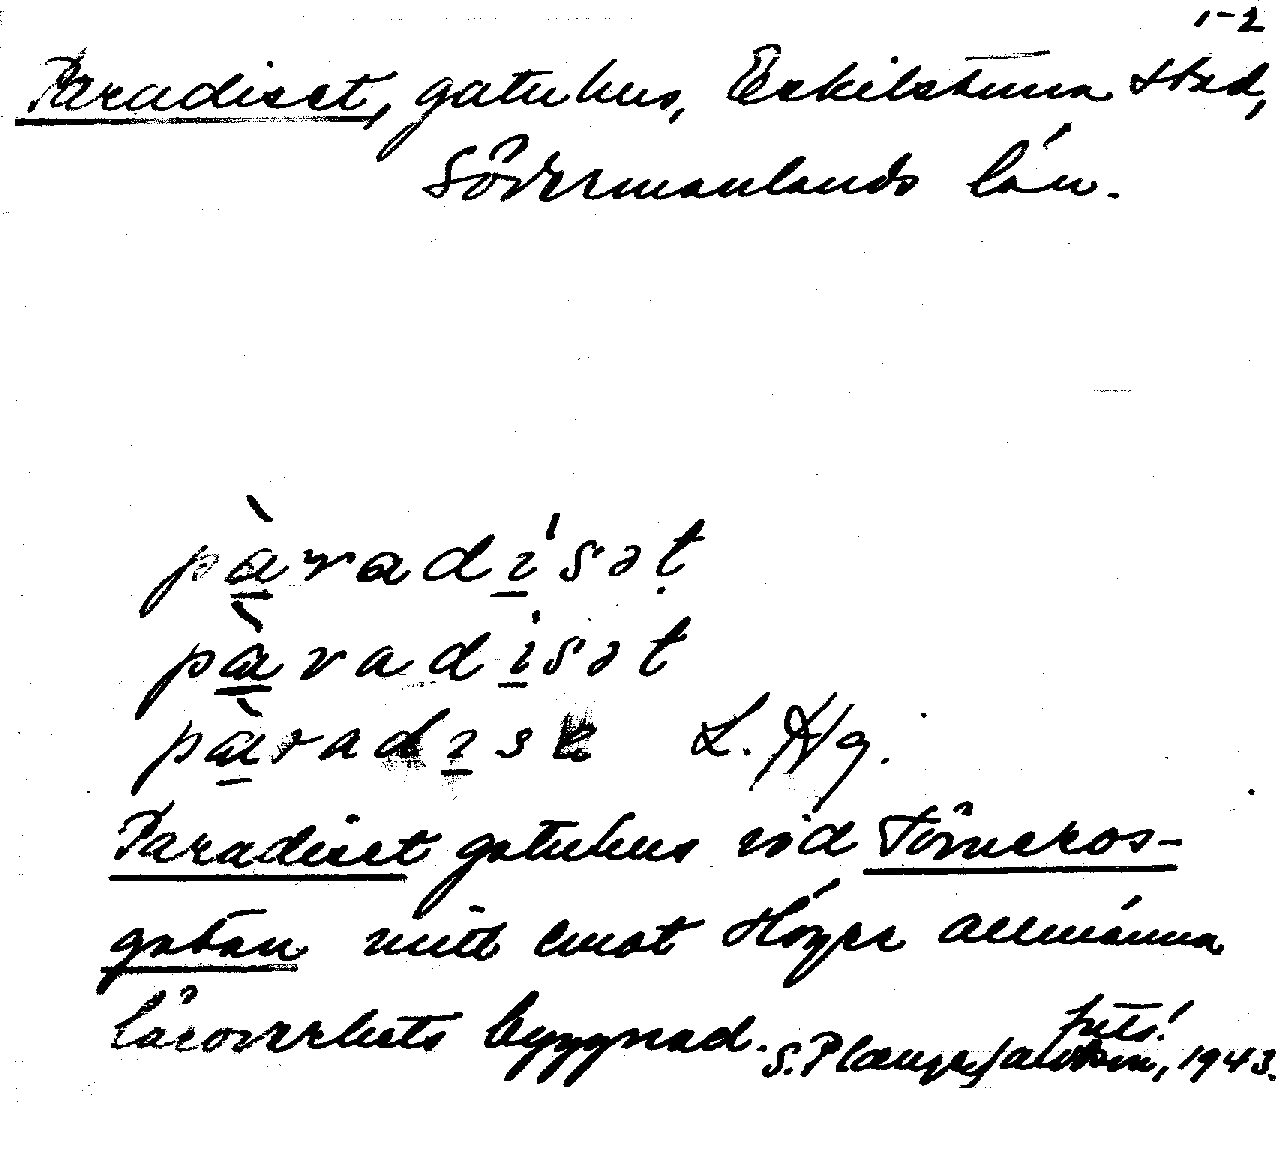 1-2
Paradiset, gatuhus, Eskilstuna stad,
Södermanlands län.
pàradísət
pàradisət
pàradise L. Hg.
Paradiset gatuhus vid Törneros-
gatan mitt emot Högre allmänna
läroverkets byggnad.
S. P. 1943.